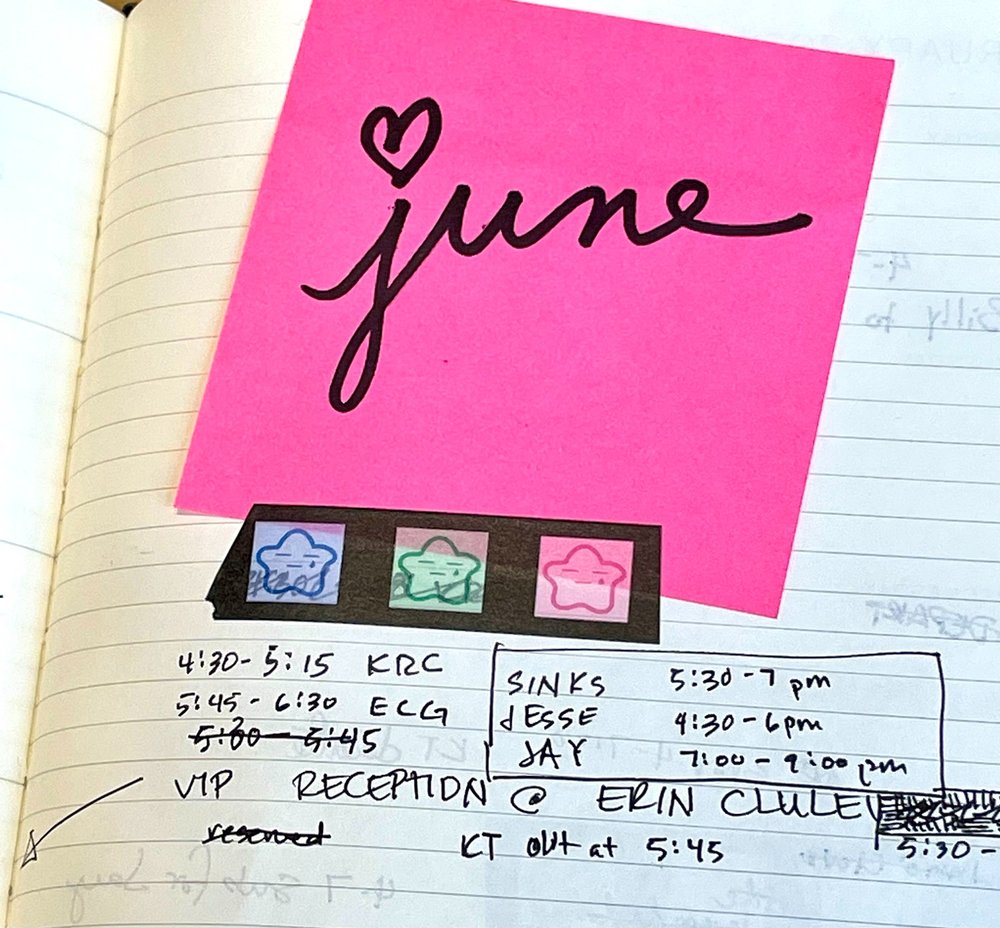 june
4:30-5:15 KRC
5:45-6:30 ECG
SINKS 5:30-7 pm
JESSE 4:30-6pm
JAY 7:00-9:00 pm
VIP RECEPTION @ ERIN CLULEY
reserved KT out at 5:45 5:30-